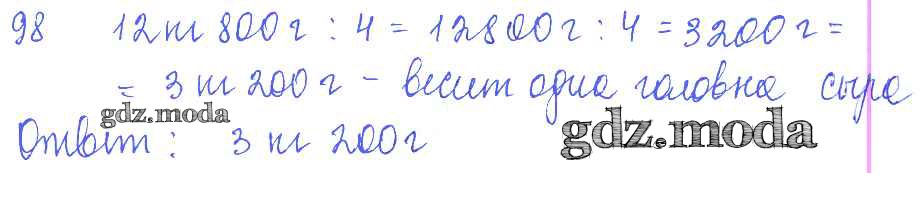 98 12 кг 800 г : 4 = 12800 г : 4 = 3200 г =
= 3 кг 200 г - весит одна головка сыра
gdz.moda
Ответ: 3 кг 200 г
gdz.moda